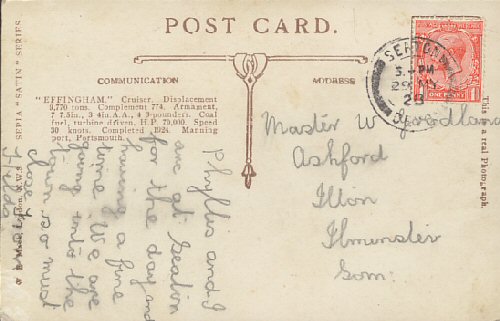 POST CARD.
COMMUNICATION
ADDRESS
"EFFINGHAM." Cruiser. Displacement
9,770 tons. Complement 774. Armament,
7 7.5in., 3 4in.A.A., 4 3-pounders. Coal
fuel, turbine driven. H.P. 70,000. Speed
30 knots. Completed 1924. Manning
port, Portsmouth.
Phyllis and I
are at Seaton
for the day and
having a fine
time. We are
going into the
town so must
close
Hilda
Master W Goodland
Ashford
Ilton
Ilminster
Som.
SEATON
5. PM
28
POSTAGE
ONE PENNY
This is a real Photograph.
SEPIA "SATIN" SERIES
London, N.W.5